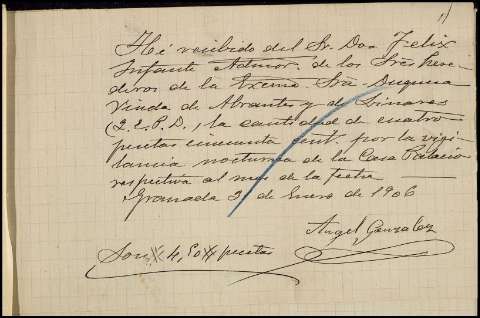 1/
He recibido del Sr. Don Felix
Infante Admor. de los Sres here-
deros de la Excma. Sra. Duquesa
Viuda de Abrantes y de Linares
(Q.E.P.D.), la cantidad de cuatro
pesetas cincuenta cent. por la vigi-
lancia nocturna de la Casa Palacio
respectiva al mes de la fecha
Granada 31 de Enero de 1906
Angel Gonzalez
Son # 4,50 # pesetas